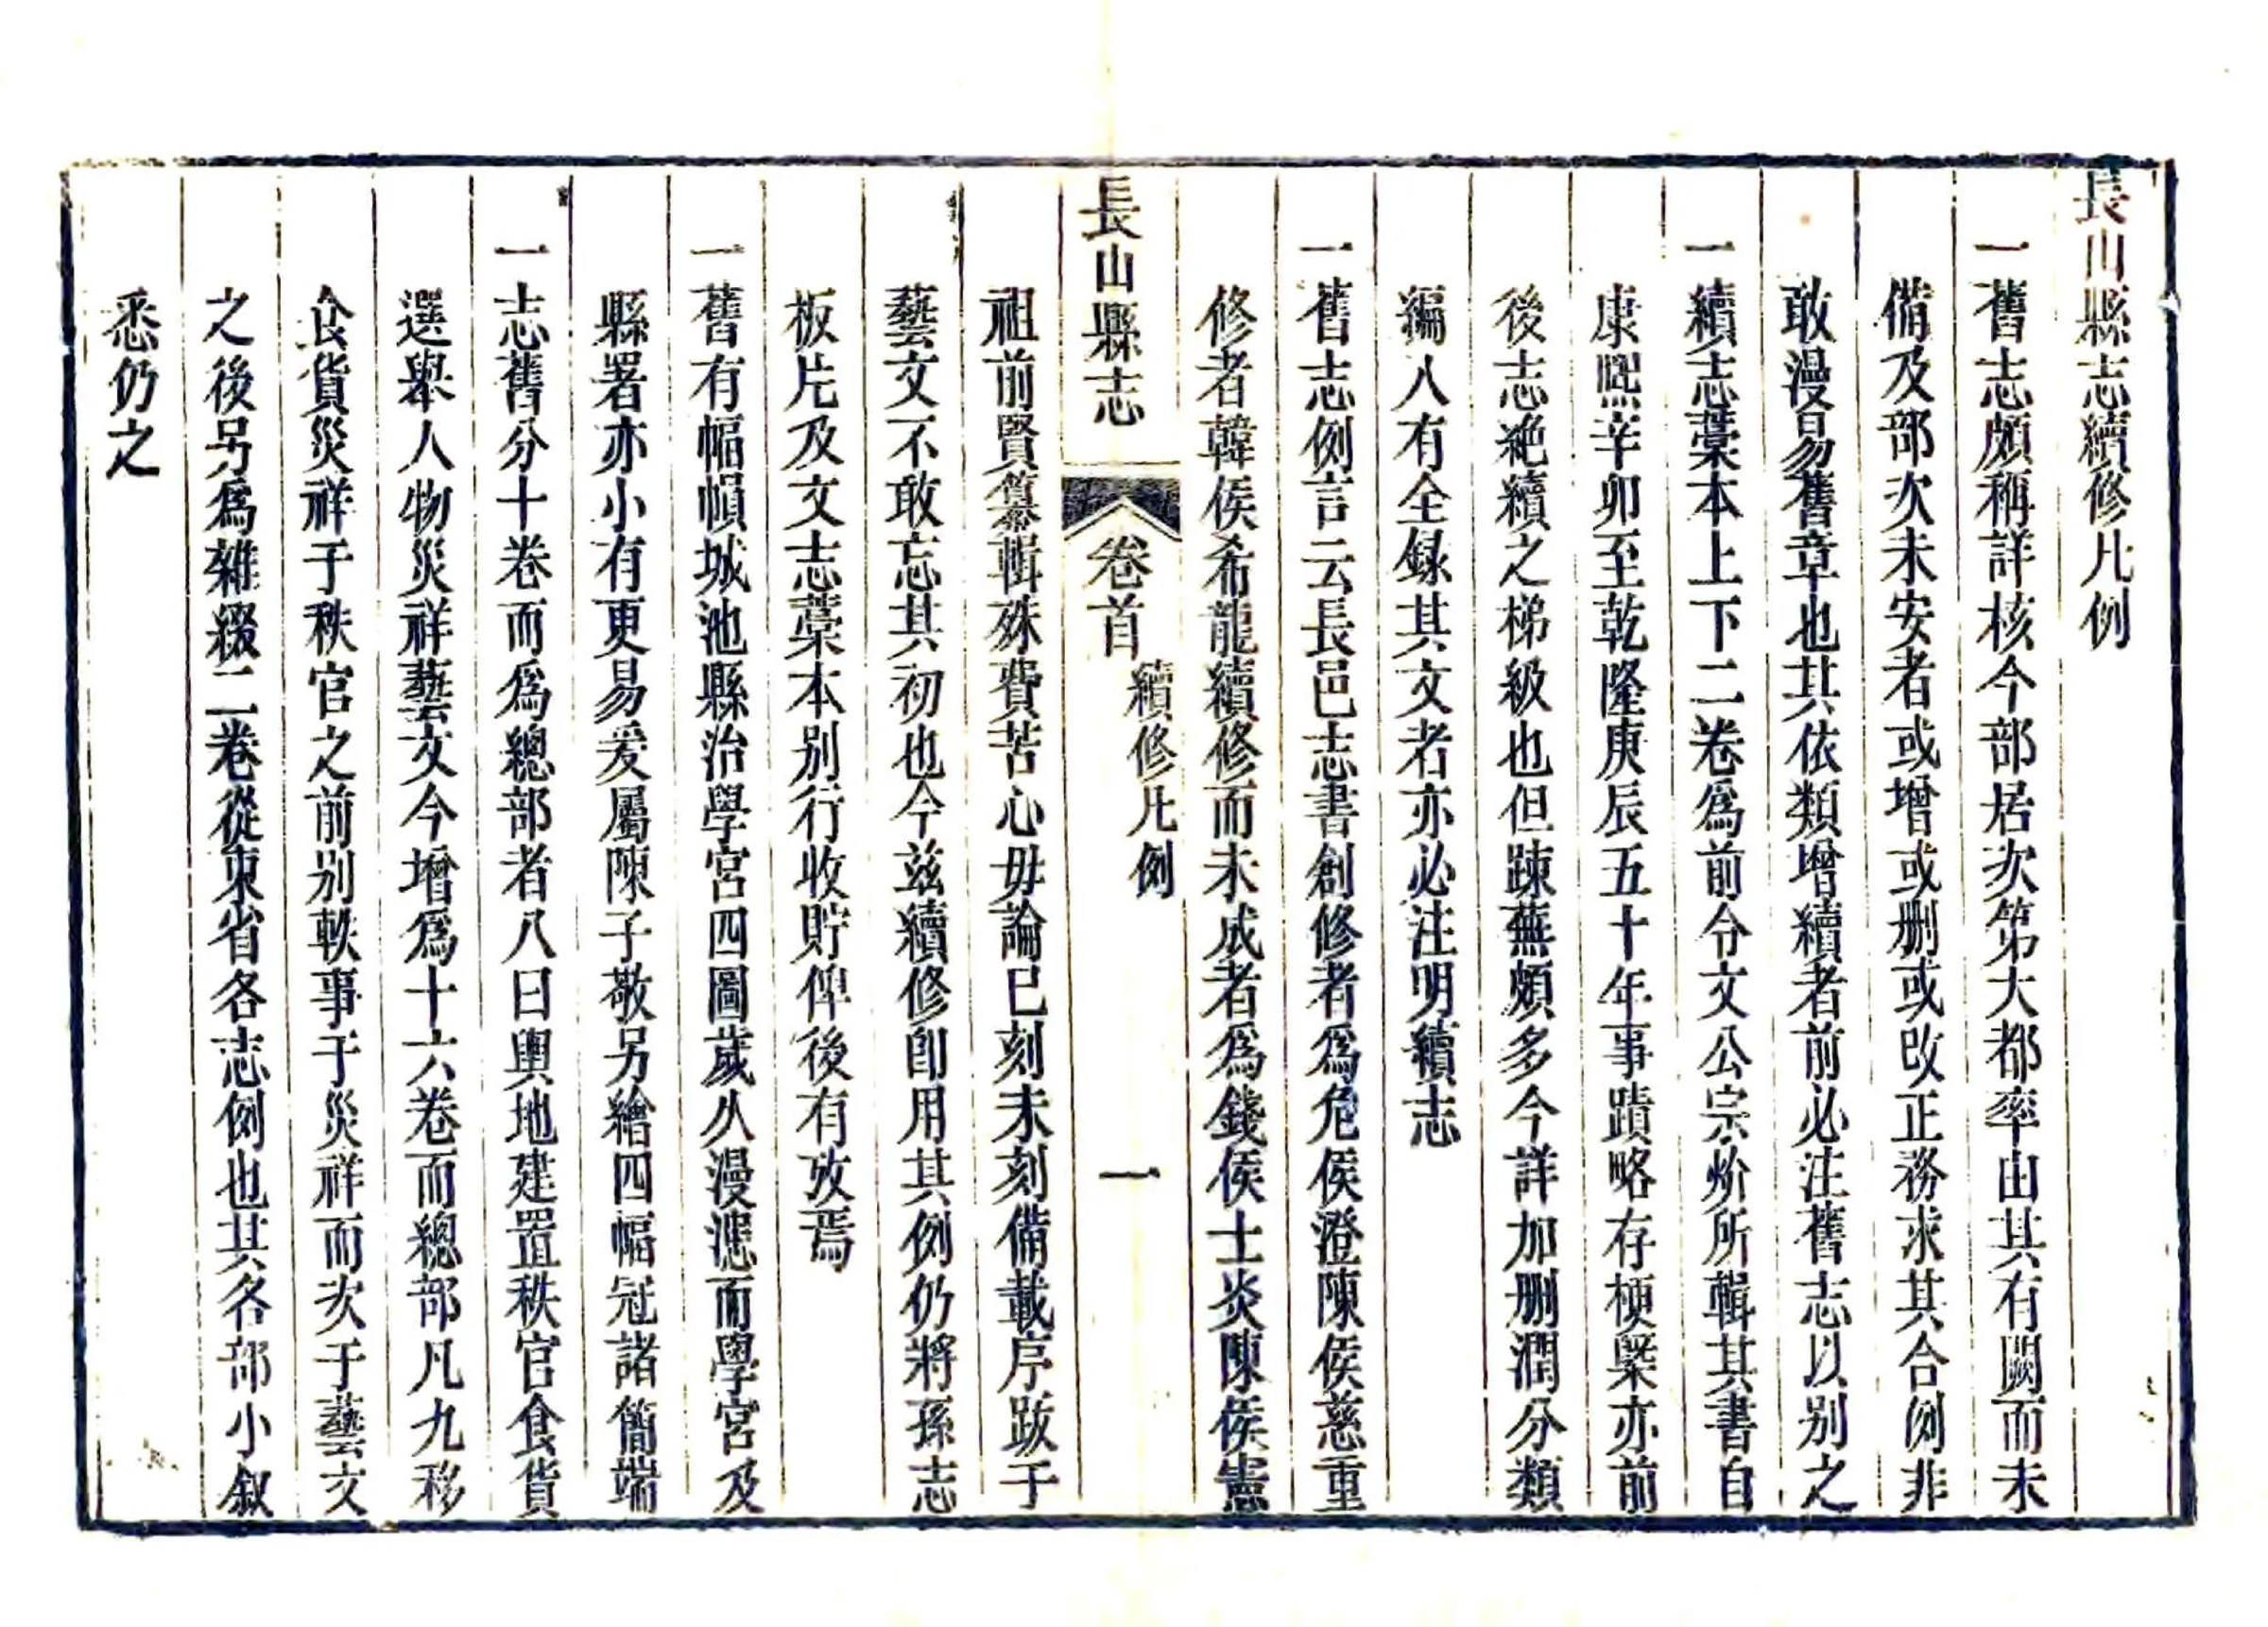 長山縣志續修凡例
一舊志頗稱詳核今部居次第大都率由其有闕而未
備及部次未安者或增或删或改正務求其合例非
敢漫易舊章也其依類增續者前必注舊志以别之
一續志藁本上下二卷爲前令文公宗炌所輯其書自
康熙辛卯至乾隆庚辰五十年事蹟略存梗槩亦前
後志絶續之梯級也但踈蕪頗多今詳加删潤分類
編入有全録其文者亦必注明續志
一舊志例言云長邑志書創修者爲危侯澄陳侯慈重
修者韓侯希龍續修而未成者爲錢侯士炎陳侯憲
長山縣志
卷首
續修凡例
一
祖前賢纂輯殊費苦心毋論已刻未刻備載序跋于
藝文不敢忘其初也今兹續修卽用其例仍將孫志
板片及文志藁本别行收貯俾後有攷焉
一舊有幅幀城池縣治學宮四圖歲久漫漶而學宮及
縣署亦小有更易爰屬陳子敬另繪四幅冠諸簡端
一志舊分十卷而爲總部者八曰輿地建置秩官食貨
選舉人物災祥藝文今增爲十六卷而總部凡九移
食貨災祥于秩官之前别軼事于災祥而次于藝文
之後另爲雜綴二卷從東省各志例也其各部小叙
悉仍之